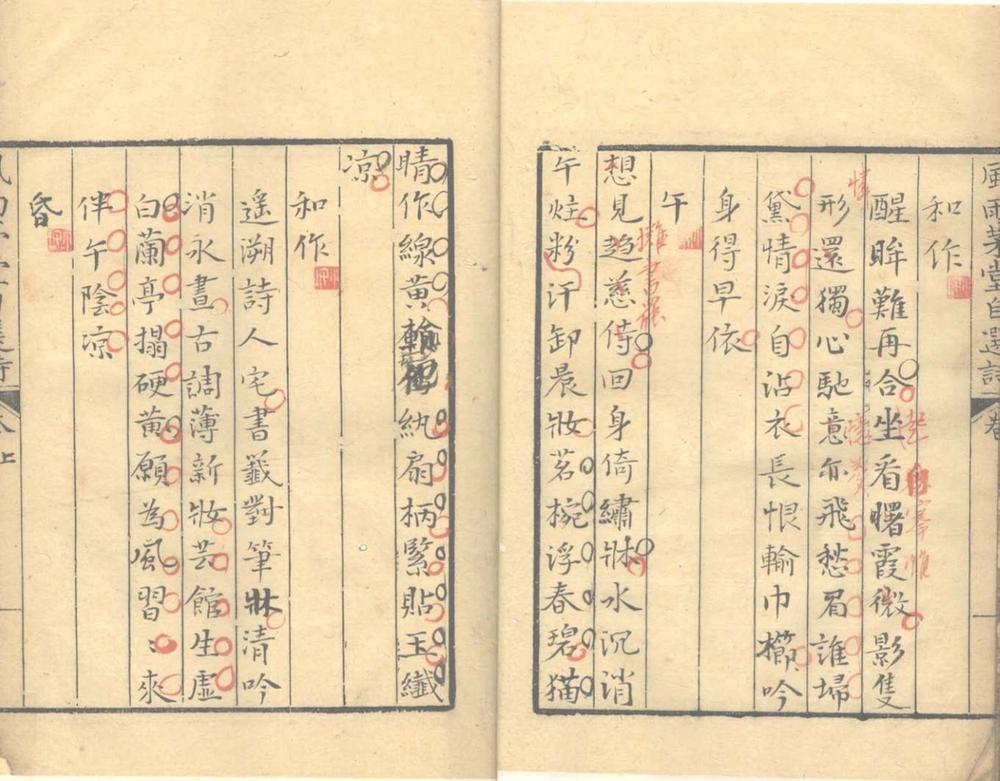 風雨茅堂自選詩 卷
和作
醒眸難再合坐看曙霞微影隻
形還獨心馳意亦飛愁眉誰埽
黛情淚自沾衣長恨輸巾櫛吟
身得早依
午
想見趋慈侍回身倚繡牀水沉消
午炷粉汗卸晨妝茗椀浮春碧猫
晴作線黃紈扇柄緊貼玉纖
凉
和作
遥溯詩人宅書籤對筆牀清吟
消永晝古調薄新妝芸館生虛
白蘭亭搨硬黃願為風習〻來
伴午陰凉
昏